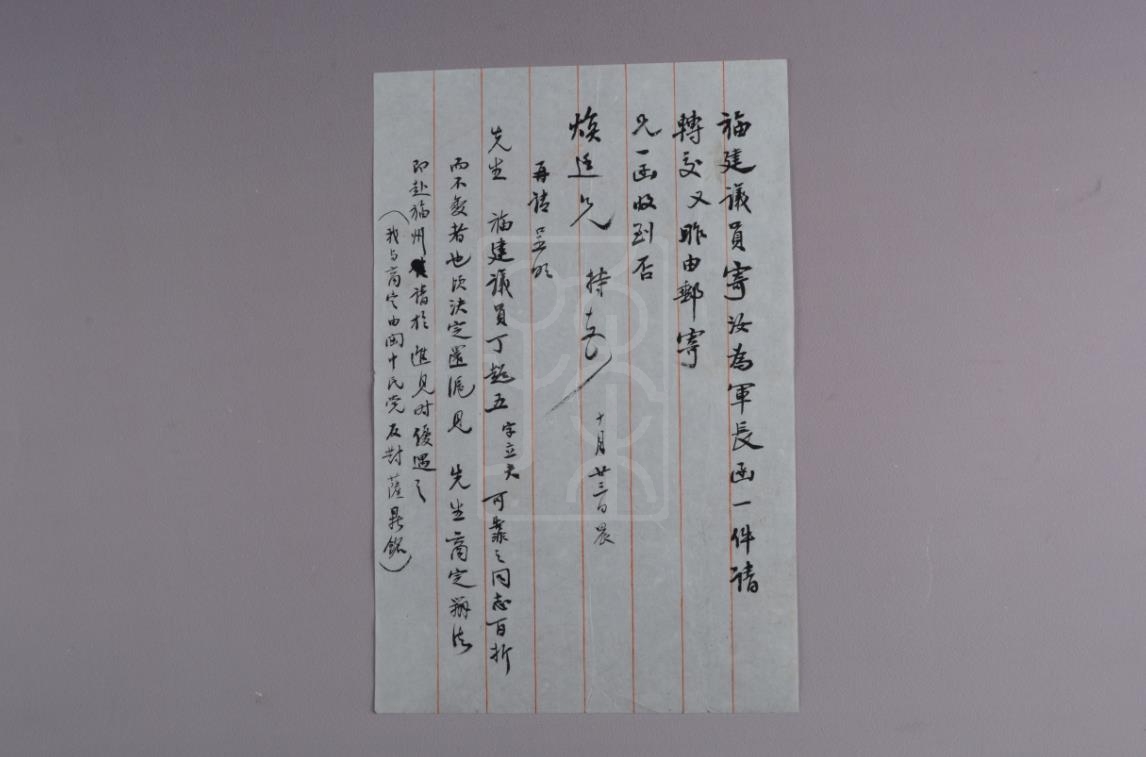 福建議員寄汝為軍長函一件請
轉交又昨由郵寄
兄一函收到否
煥廷兄 持 十月廿三日晨
再請呈明
先生 福建議員丁超五字立夫可靠之同志百折
而不變者也頃決定還滬見 先生商定辦法
即赴福州請於進見時優遇之
(我与商定由閩中民党反對薩鼎銘)